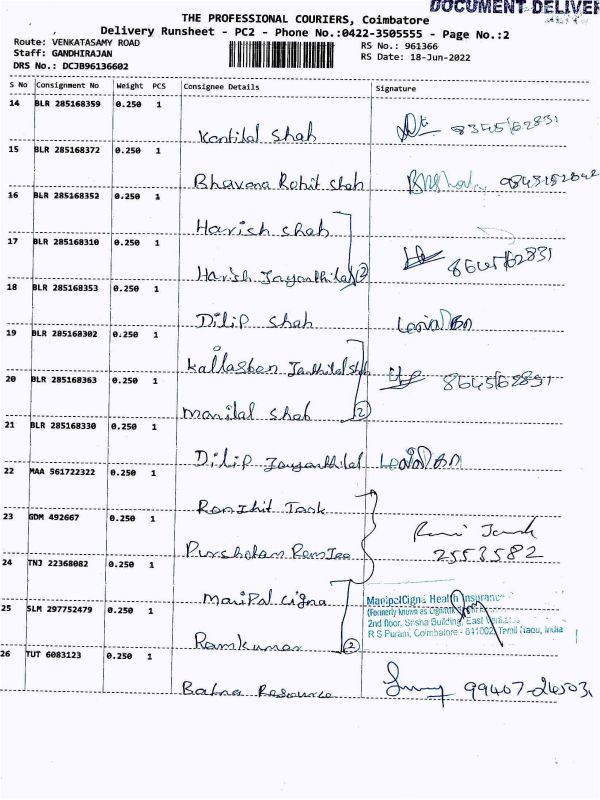 DOCUMENT DELIVER
THE PROFESSIONAL COURIERS, Coimbatore
Delivery Runsheet - PC2 - Phone No.:0422-3505555 - Page No.:2
Route: VENKATASAMY ROAD
RS No.: 961366
Staff: GANDHIRAJAN
RS Date: 18-Jun-2022
DRS No.: DCJB96136602
S No Consignment No Weight PCS Consignee Details Signature
14 BLR 285168359 0.250 1
Kantilal Shah
15 BLR 285168372 0.250 1
Bhavana Rohit Shah
16 BLR 285168352 0.250 1
Harish Shah
17 BLR 285168310 0.250 1
Harish Jayanthilal 2
18 BLR 285168353 0.250 1
Dilip Shah
19 BLR 285168302 0.250 1
Kallasben Janthilal Shah
20 BLR 285168363 0.250 1
Manilal Shah 2
21 BLR 285168330 0.250 1
Dilip Jayanthilal
22 MAA 561722322 0.250 1
Ranjhit Tank
23 GDM 492667 0.250 1
Purshotam Ramjee
2553582
24 TNJ 22368082 0.250 1
Manipal Cigna
ManipalCigna Health Insurance
(Formerly known as
25 SLM 297752479 0.250 1
2nd floor, Srisha Building, East
R S Puram, Coimbatore - 641002, Tamil Nadu, India
Ramkumar 2
26 TUT 6083123 0.250 1
Ratna Resource